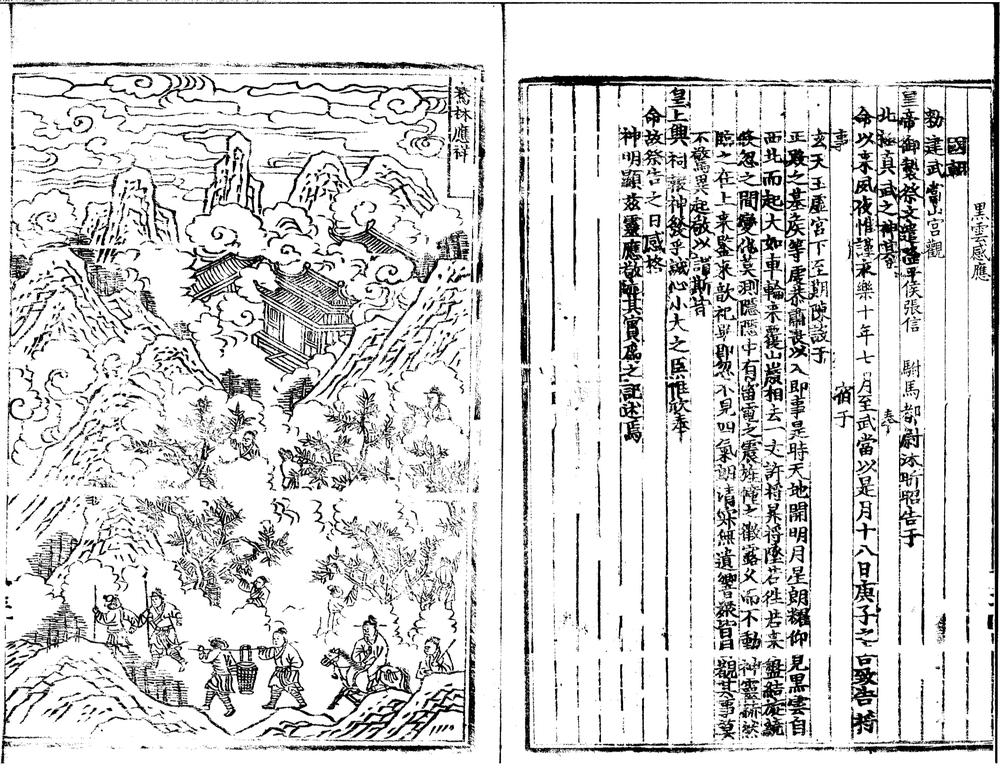 黑雲感應
國朝
勑建武當山宮觀
皇帝御製祭文遣隆平侯張信 駙馬都尉沐昕昭告于
北極真武之神其奉
命以來夙夜惟謹永樂十年七月至武當以是月十八日庚子之吉致告將
事 宿于
玄天玉虛宮下至期陳設于
正殿之基矦等虔恭肅畏以入即事是時天地開明月星朗耀仰見黑雲自
西北而起大如車輪来覆山嚴相去一丈許將昇將墜若徃若来盤結旋繞
倐忽之間變化莫測隱隱中有雷電之震旌幢之徹露久而不動神靈赫然
臨之在上来鑒来歆祀畢即忽不見四氣朗清寂無遺響衆皆目觀其事莫
不驚異起敬以謂斯皆
皇上興祠報神發乎誠心小大之臣惟欽奉
命故祭告之日感格
神明顯茲靈應敬跡其實為之記述焉
騫林應祥